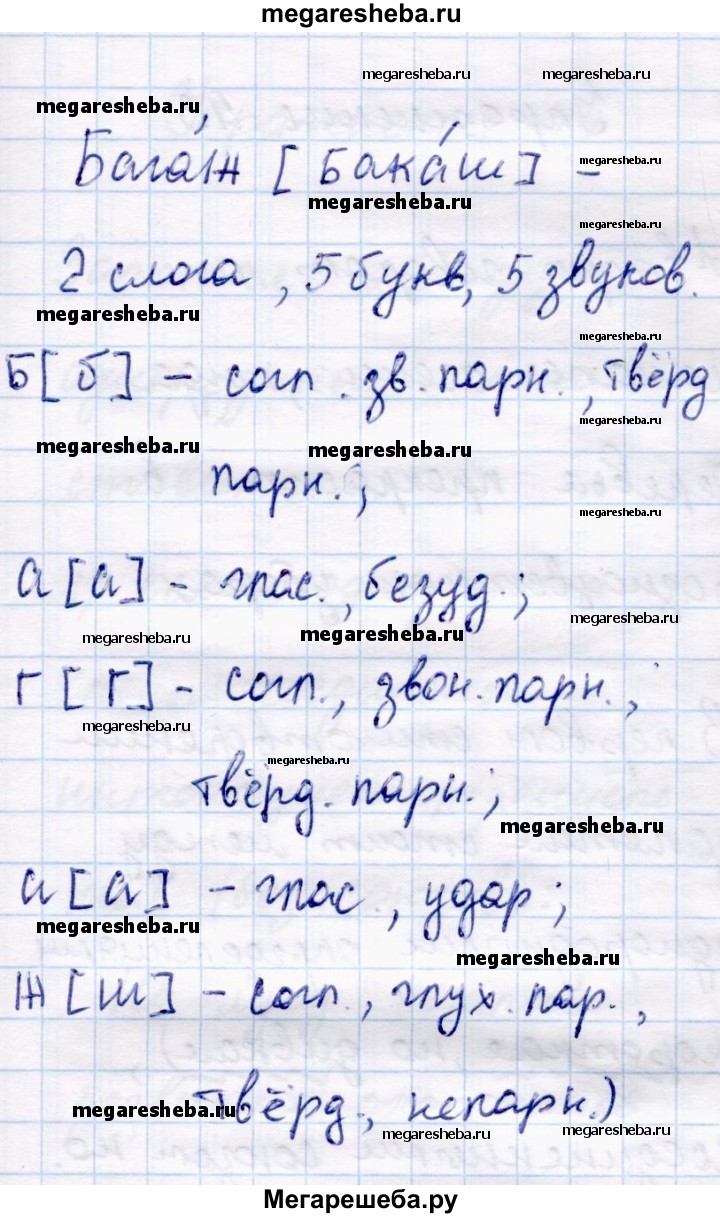 megaresheba.ru
megaresheba.ru megaresheba.ru
megaresheba.ru
Бага́ж [бака́ш] –
megaresheba.ru
megaresheba.ru
megaresheba.ru
2 слога, 5 букв, 5 звуков.
megaresheba.ru
megaresheba.ru
Б [б] – согл. зв. парн., твёрд
megaresheba.ru
megaresheba.ru megaresheba.ru
парн.;
megaresheba.ru
а [а] – глас., безуд.;
megaresheba.ru
megaresheba.ru megaresheba.ru
г [г] – согл., звон. парн.,
megaresheba.ru
megaresheba.ru
твёрд. парн.;
megaresheba.ru
а [а] – глас., удар;
megaresheba.ru
megaresheba.ru
ж [ш] – согл., глух. пар.,
твёрд., непарн.)
megaresheba.ru
megaresheba.ru megaresheba.ru
Мегарешеба.ру